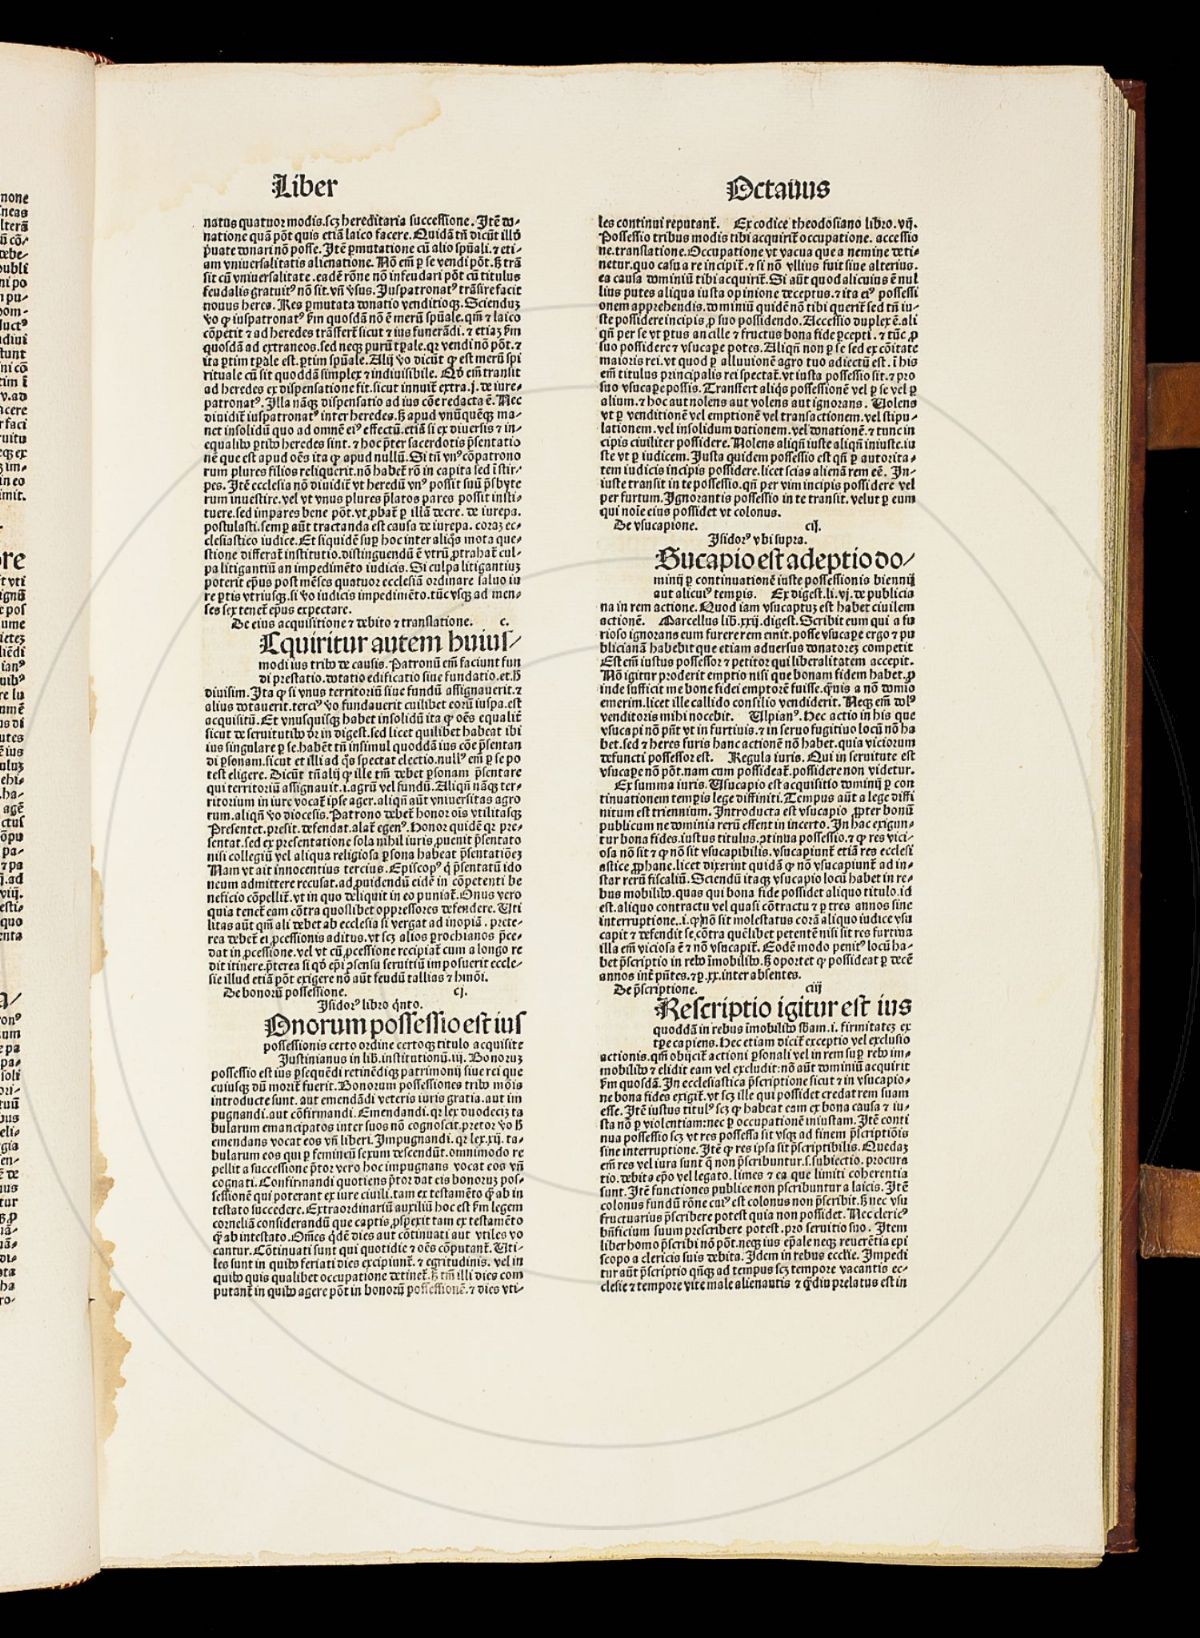 Liber
Octauus
natus quatuor modis.scȝ hereditaria successione. Itē do-
natione quā pōt quis etiā laico facere. Quidā tn̄ dicūt illō
p̄uate donari nō posse. Itē ꝑmutatione cū alio spūali.⁊ eti-
am vniuersalitatis alienatione. Nō em̄ ꝑ se vendi pōt.ꝫ trā
sit cū vniuersalitate.eadē rōne nō infeudari pōt cū titulus
feudalis gratuitꝰ nō sit.vn̄ vsus. Iuspatronatꝰ trāsire facit
nouus heres. Res ꝑmutata donatio venditioqȝ. Sciendū
vo ꝙ iuspatronatꝰ ẜm quosdā nō ē merū spūale.qm̄ ⁊ laico
cōpetit ⁊ ad heredes trāsfert sicut ⁊ ius funerādi.⁊ etiaȝ ẜm
quosdā ad extraneos.sed neqȝ purū tp̄ale.qr vendi nō pōt.⁊
ita ꝑtim tp̄ale est.ꝑtim spūale. Alij vo dicūt ꝙ est merū spi
rituale cū sit quoddā simplex ⁊ indiuisibile. Qd̓ em̄ transit
ad heredes ex dispensatione fit.sicut innuit̄ extra.j.de iure-
patronatꝰ. Illa nāqȝ dispensatio ad ius cōe redacta ē. Nec
diuidit̄ iuspatronatꝰ inter heredes.ꝫ apud vnūquēqȝ ma-
net insolidū quo ad omnē eiꝰ effectū.etiā si ex diuersis ⁊ in-
equalibꝰ ꝑtibꝰ heredes sint.⁊ hoc ꝓter sacerdotis p̄sentatio
nē que est apud oēs ita ꝙ apud nullū. Si tn̄ vnꝰ cōpatrono
rum plures filios reliquerit.nō habet̄ rō in capita sed ī stir-
pes. Itē ecclesia nō diuidit̄ vt heredū vnꝰ possit suū p̄sbyte
rum inuestire.vel vt vnus plures p̄latos pares possit insti-
tuere.sed in pares bene pōt.vt ꝓbat̄ ꝑ illā decre. de iurepa.
postulasti.semꝑ aūt tractanda est causa de iurepa. coraȝ ec-
clesiastico iudice. Et siquidē suꝑ hoc inter aliqs mota que-
stione differat̄ institutio.distinguendū ē vtrū ꝓtrahat̄ cul-
pa litigantiū an impedimēto iudicis. Si culpa litigantiuȝ
poterit ep̄us post mēses quatuor ecclesiā ordinare saluo iu
re ꝑtis vtriusqȝ.si vo iudicis impedimēto.tūc vsqȝ ad men-
ses sex tenet̄ ep̄us expectare.
De eius acquisitione ⁊ debito ⁊ translatione. c.
Cquiritur autem huius-
modi ius tribꝰ de causis. Patronū em̄ faciunt fun
di prestatio.dotatio edificatio siue fundatio.et.ħ
diuisim. Ita ꝙ si vnus territoriū siue fundū assignauerit.⁊
alius dotauerit.terciꝰ vo fundauerit cuilibet eorū iuspa.est
acquisitū. Et vnusquisqȝ habet insolidū ita ꝙ oēs equalit̄
sicut de seruitutibꝰ dr̄ in digest.sed licet quilibet habeat ibi
ius singulare ꝑ se.habēt tn̄ insimul quoddā ius cōe p̄sentan
di ꝑsonam.sicut et illi ad qs̄ spectat electio.nullꝰ em̄ ꝑ se po
test eligere. Dicūt tn̄ alij ꝙ ille tm̄ debet ꝑsonam p̄sentare
qui territoriū assignauit.i.agrū vel fundū. Aliqn̄ nāqȝ ter-
ritorium in iure vocat̄ ipse ager.aliqn̄ aūt vniuersitas agro
rum.aliqn̄ vo diocesis. Patrono debet̄ honor oīs vtilitasqȝ
Presentet.presit.defendat.alat̄ egenꝰ. Honor quidē qr pre-
sentat.sed ex presentatione sola nihil iuris ꝓuenit p̄sentato
nisi collegiū vel aliqua religiosa ꝑsona habeat p̄sentatiōeȝ
Nam vt ait innocentius tercius. Episcopꝰ q̄ p̄sentatū ido
neum admittere recusat.ad ꝓuidendū eidē in cōpetenti be
neficio cōpellit̄.vt in quo deliquit in eo puniat̄. Onus vero
quia tenet̄ eam cōtra quoslibet oppressores defendere. Uti
litas aūt qm̄ ali debet ab ecclesia si vergat ad inopiā. prete-
rea debet̄ ei ꝓcessionis aditus.vt scȝ alios ꝑrochianos p̄ce-
dat in ꝓcessione.vel vt cū ꝓcessione recipiat̄ cum a longo re
dit itinere.p̄terea si qd̓ ep̄i ꝯsensu seruitiū imposuerit eccle-
sie illud etiā pōt exigere nō aūt feudū tallias ⁊ hmōi.
De bonorū possessione. cj.
Isidorꝰ libro qn̄to.
Onorum possessio est ius
possessionis certo ordine certoqȝ titulo acquisite
Iustinianus in lib.institutionū.iij. Bonoruȝ
possessio est ius ꝑsequēdi retinēdiqȝ patrimonij siue rei que
cuiusqȝ dū morit̄ fuerit. Bonorum possessiones tribꝰ mōis
introducte sunt. aut emendādi veteris iuris gratia.aut im
pugnandi.aut cōfirmandi. Emendandi.qr lex duodeciȝ ta
bularum emancipatos inter suos nō cognoscit.pretor vo ħ
emendans vocat eos vn̄ liberi. Impugnandi.qr lex.xij. ta-
bularum eos qui ꝑ femineū sexum descendūt.omnimodo re
pellit a successione p̄tor vero hoc impugnans vocat eos vn̄
cognati. Confirmandi quotiens p̄tor dat eis bonorū pos-
sessionē qui poterant ex iure ciuili.tam ex testamēto q̄ ab in
testato succedere. Extraordinariū auxiliū hoc est ẜm legem
corneliā considerandū que captis ꝓspexit tam ex testamēto
q̄ ab intestato. Om̄es qd̓ē dies aut cōtinuati aut vtiles vo
cantur. Cōtinuati sunt qui quotidie ⁊ oēs cōputant̄. Uti-
les sunt in quibꝰ feriati dies excipiunt̄.⁊ egritudinis. vel in
quibꝰ quis qualibet occupatione detinet̄.ꝫ tn̄ illi dies com
putant̄ in quibꝰ agere pōt in bonorū possessionē.⁊ dies vti-
les continui reputant̄. Ex codice theodosiano libro.vij.
Possessio tribus modis tibi acquirit̄ occupatione. accessio
ne.translatione. Occupatione vt vacua que a nemine deti-
netur.quo casu a re incipit̄.⁊ si nō vllius fuit siue alterius.
ea causa dominiū tibi acquirit̄. Si aūt quod alicuius ē nul
lius putes aliqua iusta opinione deceptus.⁊ ita eiꝰ possessi
onem apprehendis.dominiū quidē nō tibi querit̄ sed tn̄ iu-
ste possidere incipis ꝓ suo possidendo. Accessio duplex ē.ali
qn̄ per se vt ꝑtus ancille ⁊ fructus bona fide ꝑcepti. ⁊ tūc ꝓ
suo possidere ⁊ vsucaꝑe potes. Aliqn̄ non ꝑ se sed ex cōitate
maioris rei.vt quod ꝑ alluuionē agro tuo adiectū est. ī his
em̄ titulus principalis rei spectat̄.vt iusta possessio sit.⁊ pro
suo vsucaꝑe possis. Transfert aliqs̄ possessionē vel ꝑ se vel ꝑ
alium.⁊ hoc aut nolens aut volens aut ignorans. Uolens
vt ꝑ venditionē vel emptionē vel transactionem.vel stipu-
lationem.vel insolidum dationem.vel donationē.⁊ tunc in
cipis ciuiliter possidere. Nolens aliqn̄ iuste aliqn̄ iniuste.iu
ste vt ꝑ iudicem. Iusta quidem possessio est qn̄ ꝑ autorita-
tem iudicis incipis possidere.licet scias alienā rem eē. In-
iuste transit in te possessio.qn̄ per vim incipis possidere vel
per furtum. Ignorantis possessio in te transit.velut ꝑ eum
qui noīe eius possidet vt colonus.
De vsucapione. cij.
Isidorꝰ vbi supra.
Sucapio est adeptio do-
minij ꝑ continuationē iuste possessionis biennij
aut alicuiꝰ temꝑis. Ex digest.li.vj.de publicia
na in rem actione. Quod iam vsucaptuȝ est habet ciuilem
actionē. Marcellus lib.xxij.digest. Scribit eum qui a fu
rioso ignorans eum furere rem emit.posse vsucaꝑe ergo ⁊ pu
blicianā habebit que etiam aduersus donatoreȝ competit
Est em̄ iustus possessor ⁊ petitor qui liberalitatem accepit.
Nō igitur proderit emptio nisi que bonam fidem habet.ꝓ
inde sufficit me bone fidei emptorē fuisse.q̄uis a nō domio
emerim.licet ille callido consilio vendiderit. Neqȝ em̄ dolꝰ
venditoris mihi nocebit. Ulpianꝰ. Hec actio in his que
vsucapi nō pn̄t vt in furtiuis.⁊ in seruo fugitiuo locū nō ha
bet.sed ⁊ heres furis hanc actionē nō habet.quia viciorum
defuncti possessor est. Regula iuris. Qui in seruitute est
vsucaꝑe nō pōt.nam cum possideat̄.possidere non videtur.
Ex summa iuris. Usucapio est acquisitio dominij ꝑ con
tinuationem temꝑis lege diffiniti. Tempus aūt a lege diffi
nitum est triennium. Introducta est vsucapio ꝓpter bonū
publicum ne dominia rerū essent in incerto. In hac exigun-
tur bona fides.iustus titulus.ꝯtinua possessio.⁊ ꝙ res vici-
osa nō sit ⁊ ꝙ nō sit vsucapibilis.vsucapiunt̄ etiā res ecclesi
astice ꝓphane.licet dixerint quidā ꝙ nō vsucapiunt̄ ad in-
star rerū fiscaliū. Sciendū itaqȝ vsucapio locū habet in re-
bus mobilibꝰ.quas qui bona fide possidet aliquo titulo.id
est.aliquo contractu vel quasi cōtractu ⁊ ꝑ tres annos sine
interruptione..i.ꝙ nō sit molestatus corā aliquo iudice vsu
capit ⁊ defendit se cōtra quēlibet petentē nisi sit res furtiua
illa em̄ viciosa ē ⁊ nō vsucapit̄. Eodē modo penitꝰ locū ha-
bet p̄scriptio in rebꝰ īmobilibꝰ.ꝫ oportet ꝙ possideat ꝑ decē
annos int̄ pn̄tes.⁊ ꝑ.xx.inter absentes.
De p̄scriptione. ciij
Rescriptio igitur est ius
quoddā in rebus īmobilibꝰ sb̄am.i.firmitateȝ ex
tp̄e capiens. Hec etiam dicit̄ exceptio vel exclusio
actionis.qm̄ obijcit̄ actioni ꝑsonali vel in rem suꝑ rebꝰ im-
mobilibꝰ ⁊ elidit eam vel excludit:nō aūt dominiū acquirit
ẜm quosdā. In ecclesiastica p̄scriptione sicut ⁊ in vsucapio-
ne bona fides exigit̄.vt scȝ ille qui possidet credat rem suam
esse. Itē iustus titulꝰ scȝ ꝙ habeat eam ex bona causa ⁊ iu-
sta nō ꝑ violentiam:nec ꝑ occupationē iniustam. Itē conti
nua possessio scȝ vt res possessa sit vsqȝ ad finem p̄scriptiōis
sine interruptione. Itē ꝙ res ipsa sit p̄scriptibilis. Quedaȝ
em̄ res vel iura sunt q̄ non p̄scribuntur.s.subiectio. procura
tio.debita ep̄o vel legato. limes ⁊ ea que limiti coherentia
sunt. Itē functiones publice non p̄scribuntur a laicis. Itē
colonus fundū rōne cuiꝰ est colonus non p̄scribit.ꝫ nec vsu
fructuarius p̄scribere potest quia non possidet. Nec clericꝰ
bn̄ficium suum prescribere potest.pro seruitio suo. Item
liber homo p̄scribi nō pōt.neqȝ ius ep̄ale neqȝ reuerētia epi
scopo a clericis suis debita. Idem in rebus eccl̄ie. Impedi
tur aūt p̄scriptio qn̄qȝ ad tempus scȝ tempore vacantis ec-
clesie ⁊ tempore vite male alienantis ⁊ q̄diu prelatus est in